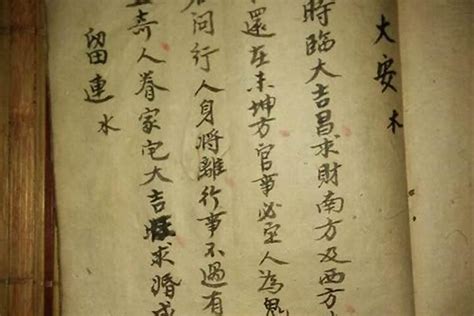 大安木
時臨大吉昌求財南方及西方
還在未坤方官事必空人為鬼
問行人身將離行事不過有
奇人眷家宅大吉旺求婚成
留連水